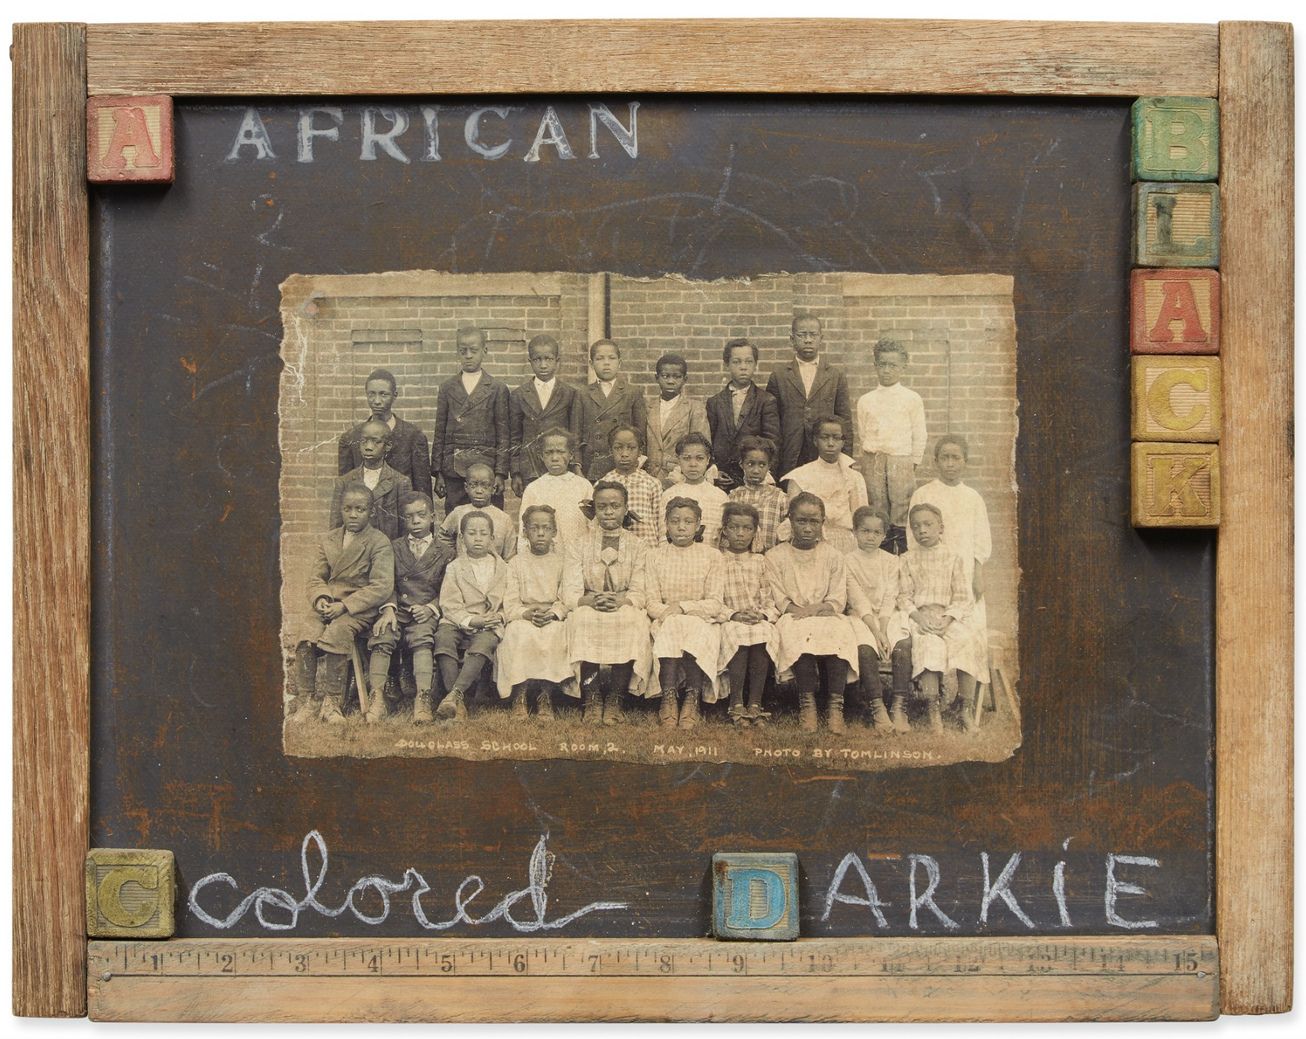 A AFRICAN
B
L
A
C
K
DOUGLASS SCHOOL ROOM, 2. MAY, 1911 PHOTO BY TOMLINSON.
C colored D ARKiE
1 2 3 4 5 6 7 8 9 10 11 12 13 14 15